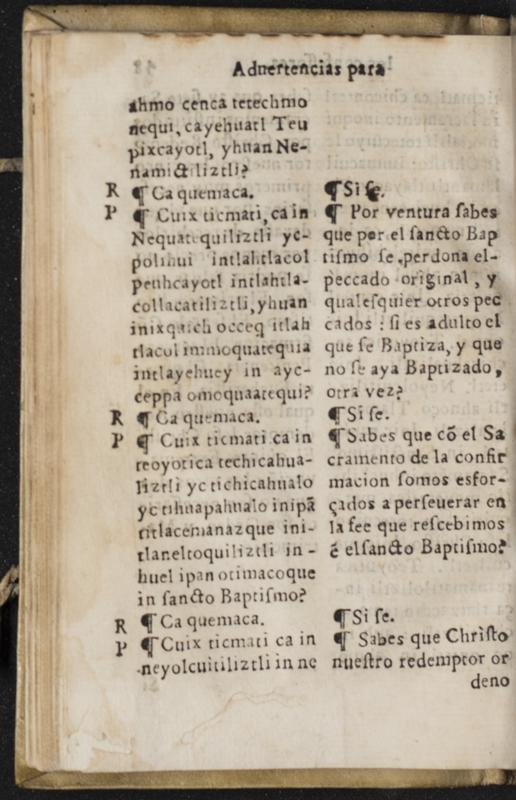 Aduertencias para
ahmo cenca tetechmo
nequi, ca yehuatl Teu
pixcayotl, yhuan Ne-
namictiliztli?
R ¶ Ca quemaca.
P ¶ Cuix ticmati, ca in
Nequatequiliztli yc-
polihui intlahtlacol
peuhcayotl intlahtla-
collacatiliztli, yhuan
inixquich occeq itlah
tlacol immoquatequia
intlayehuey in ayc-
ceppa omoquaatequi?
R ¶ Ca quemaca.
P ¶ Cuix ticmati ca in
teoyotica techicahua-
liztli yc tichicahualo
yc tihuapahualo inipã
titlacemanazque ini-
tlaneltoquiliztli in-
huel ipan otimacoque
in sancto Baptismo?
R ¶ Ca quemaca.
P ¶ Cuix ticmati ca in
neyolcuitiliztli in ne
¶ Si se.
¶ Por ventura sabes
que por el sancto Bap
tismo se perdona el-
peccado original, y
qualesquier otros pec
cados : si es adulto el
que se Baptiza, y que
no se aya Baptizado,
otra vez?
¶ Si se.
¶ Sabes que cõ el Sa
cramento de la confir
macion somos esfor-
çados a perseuerar en
la fee que rescebimos
ẽ el sancto Baptismo?
¶ Si se.
¶ Sabes que Christo
nuestro redemptor or
deno